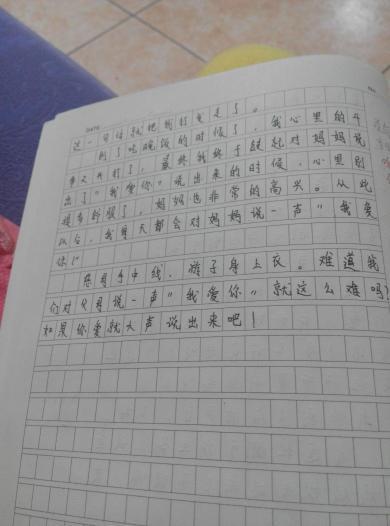 这一句话就把我打发走了。
到了吃晚饭的时候了，我心里的斗
争又开打了，最终我终于鼓起对妈妈说
出了"我爱你"说出来的时候，心里别
提有舒服了，妈妈也非常的高兴。从此
以后，我每天都会对妈妈说一声"我爱
你！"
慈母手中线，游子身上衣。难道我
们对父母说一声"我爱你"就这么难吗？
如果你爱就大声说出来吧！